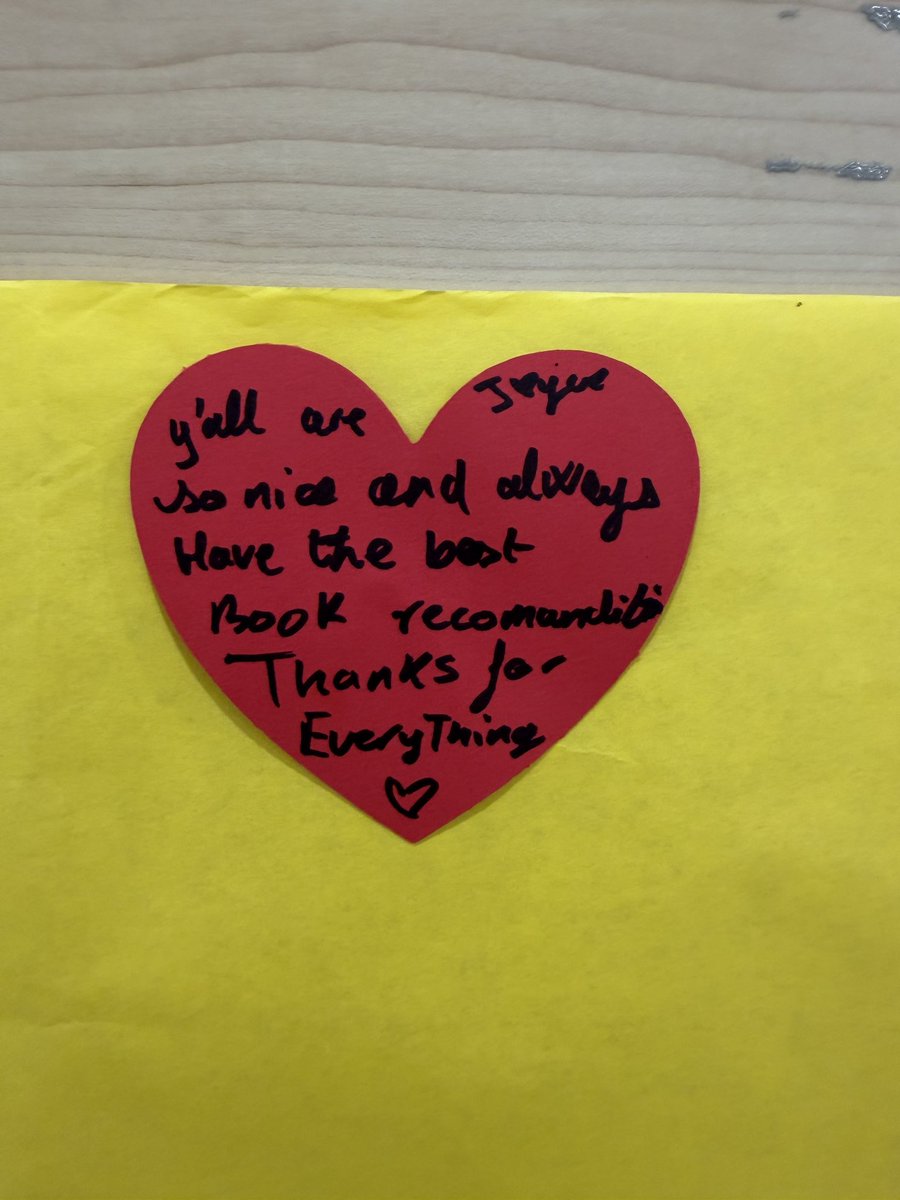 y'all are
so nice and always
Have the best
Book
Thanks for
EveryThing